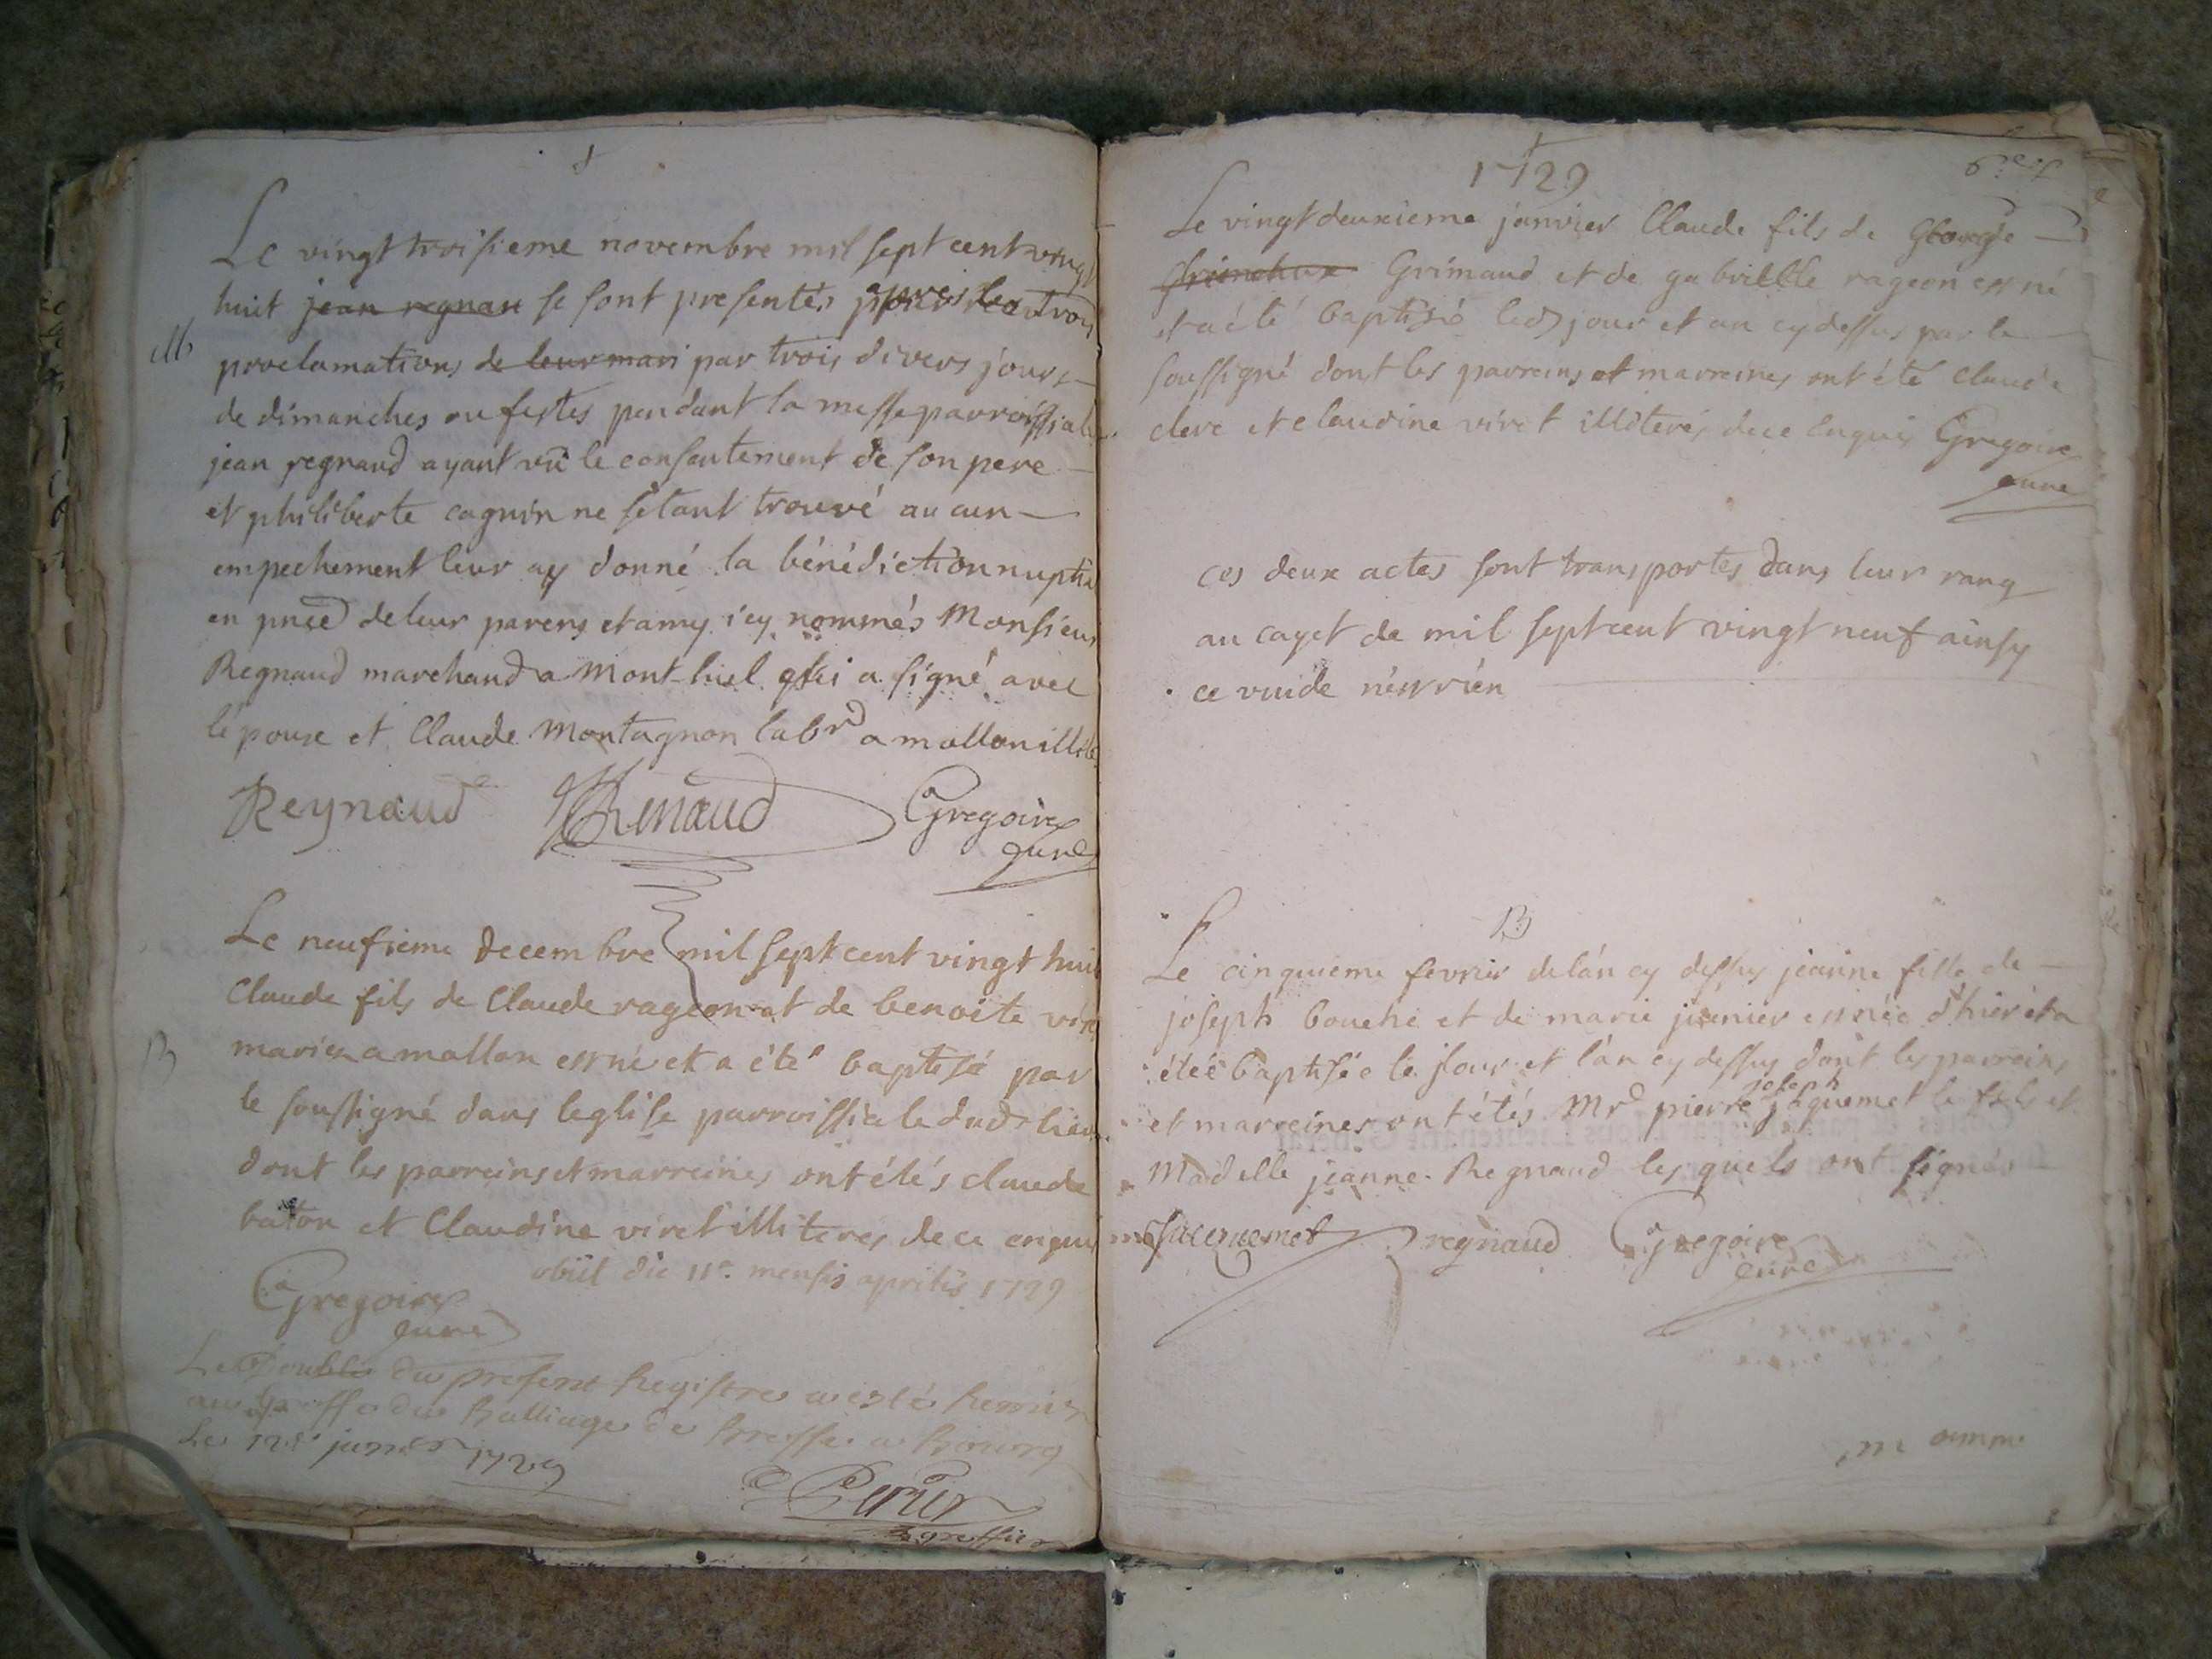 Le vingt troisieme novembre mil sept cent vingt
huit jean regnau se sont presentés apres les trois
M
proclamations de leur mari par trois divers jours
de dimanches ou festes pendant la messe parroissiale
jean regnaud ayant vû le consentement de son pere
et philiberte cagnin ne setant trouvé aucun
empechement leur ay donné la bénédiction nuptia
en pnce de leur parens et amy icy nommés Monsieur
Regnaud marchand a Mont-luel qui a signé avec
lépoux et Claude Montagnon labr a mollon illité
Reynaud Renaud Gregoire
curé
Le neufieme decembre mil sept cent vingt huit
Claude fils de Claude rageon et de benoite viret
mariez a mollon est né et a été baptisé par
B
le soussigné dans leglise parroissiale dud lieu
dont les parreins et marreines ont étés claude
baton et Claudine viret illiterés de ce enquis
obiit die 11a mensis aprilis 1729
Gregoire
curé
Le Double du present Registre a esté Remis
au greffe du Balliage de Bresse a Bourg
Le 12e janvier 1729
Perier
greffier
1729
Le vingt deuxieme janvier Claude fils de George
Grimaud et de gabrielle rageon est né
et a été baptisé led jour et an cy dessus par le
soussigné dont les parreins et marreines ont été claude
clere et claudine viret illiterés de ce enquis Gregoire
curé
ces deux actes sont transportés dans leur rang
au cayet de mil sept cent vingt neuf ainsy
ce vuide n'est rien
B
Le cinquieme fevrier de lán cy dessus jeanne fille de
joseph bouché et de marie juenier est née d'hier et a
étéé baptisée le jour et lán cy dessus dont les parreins
joseph
et marreines ont étés Mr pierre jaquemet le fils et
Madelle jeanne Regnaud lesquels ont signés
jacquemet regnaud Gregoire
curé